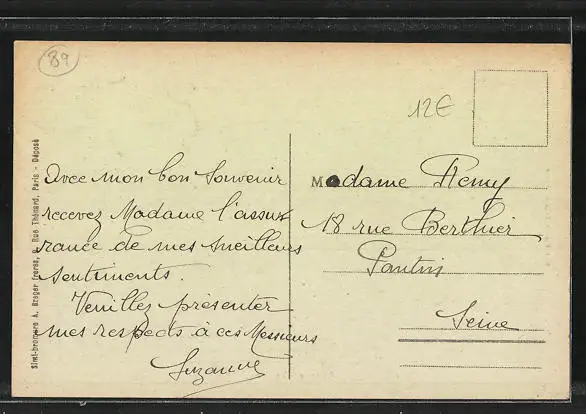 89
12€
Avec mon bon Souvenir
recevez Madame l'assu
rance de mes meilleurs
sentiments.
Veuillez présenter
mes respects à ces Messieurs
Suzanne
Madame Remy
18 rue Berthier
Pantin
Seine
Simi-bromure A. Breger frères, 9, Rue Thénard, Paris - Déposé